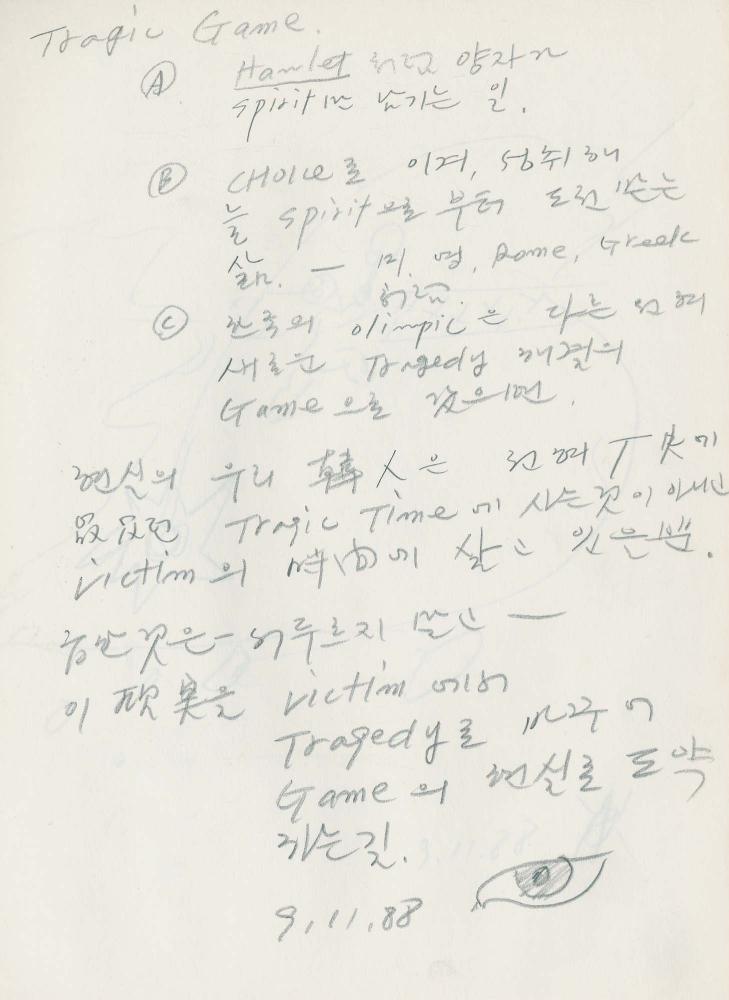 Tragic Game.
Ⓐ Hamlet 처럼 양자가
spirit만 남기는 일.
Ⓑ CHOICE로 이겨, 성취해
늘 spirit으로 부터 도전 받는
삶. — 미, 영, Rome, Greek
처럼.
Ⓒ 한국의 olimpic은 다른 전혀
새로운 Tragedy 해결의
Game으로 갔으면.
현실의 우리 韓人은 전혀
Tragic Time에 사는것이 아니고
victim의 時間에 살고 있을뿐.
급한것은 - 서두르지 말고 —
이 現実을 victim에서
Tragedy로 바꾸어
Game의 현실로 도약
하는길.
9.11.88